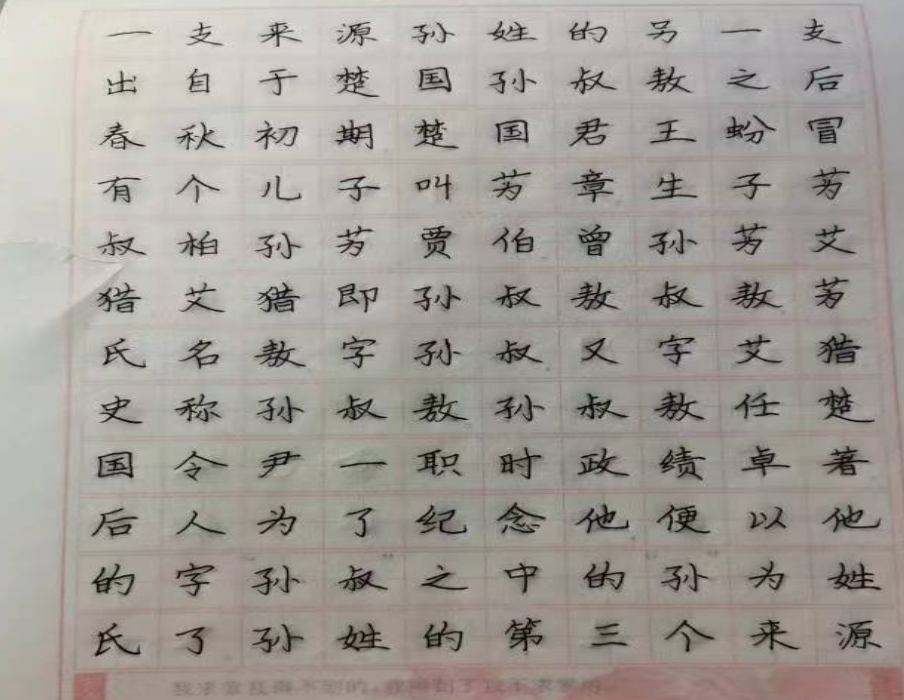 一支来源孙姓的另一支
出自于楚国孙叔敖之后
春秋初期楚国君王蚡冒
有个儿子叫芳章生子芳
叔柏孙芳贾伯曾孙芳艾
猎艾猎即孙叔敖叔敖芳
氏名敖字孙叔又字艾猎
史称孙叔敖孙叔敖任楚
国令尹一职时政绩卓著
后人为了纪念他便以他
的字“孙叔”之中的“孙”为姓
氏了孙姓的第三个来源